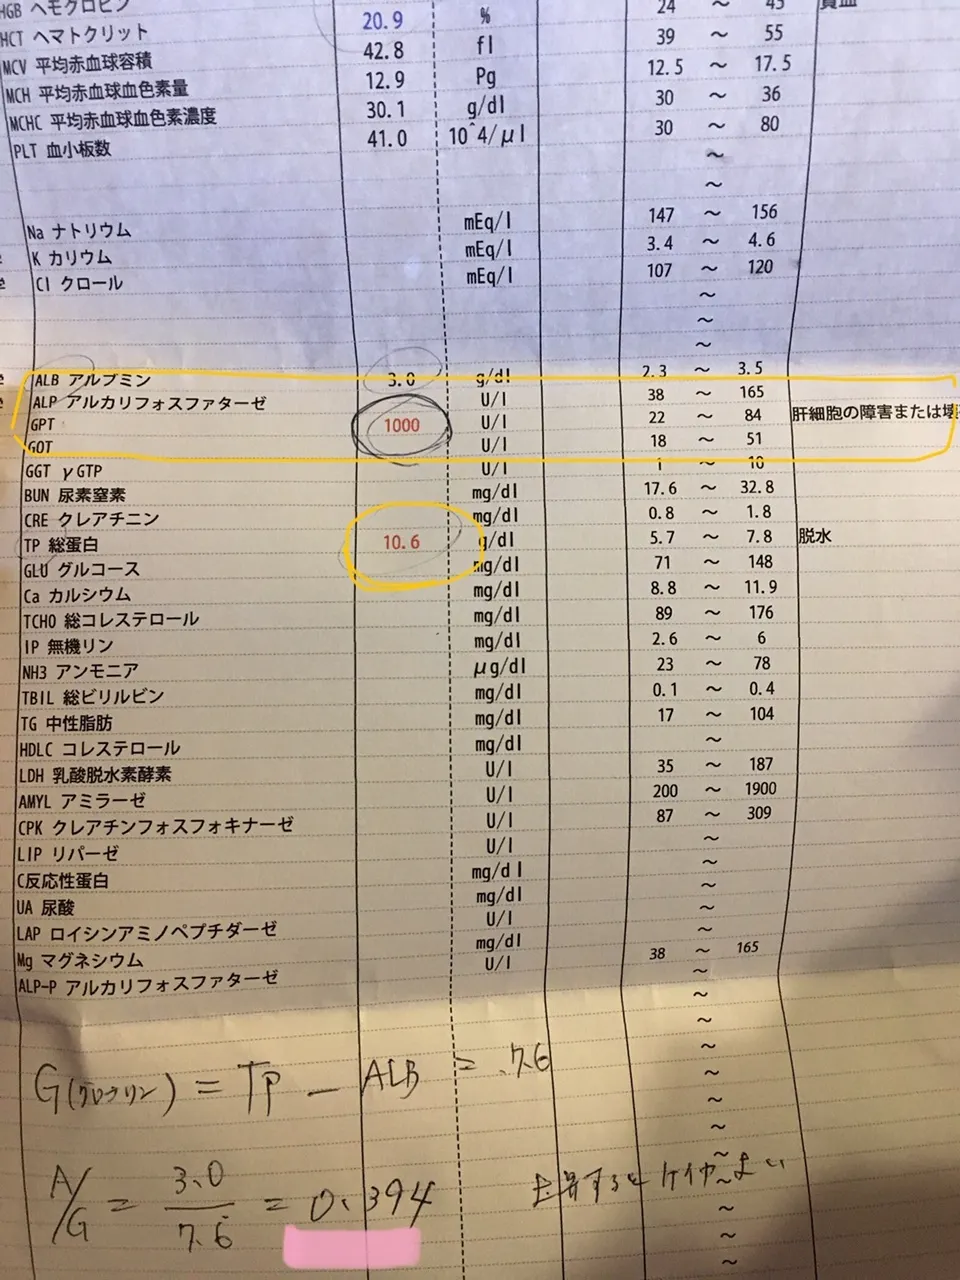 HGB ヘモグロビン 24 ～ 45 貧血
HCT ヘマトクリット 20.9 % 39 ～ 55
MCV 平均赤血球容積 42.8 fl 12.5 ～ 17.5
MCH 平均赤血球血色素量 12.9 Pg 30 ～ 36
MCHC 平均赤血球血色素濃度 30.1 g/dl 30 ～ 80
PLT 血小板数 41.0 10^4/μl ～
～
Na ナトリウム mEq/l 147 ～ 156
K カリウム mEq/l 3.4 ～ 4.6
Cl クロール mEq/l 107 ～ 120
～
～
～
ALB アルブミン 3.0 g/dl 2.3 ～ 3.5
ALP アルカリフォスファターゼ U/l 38 ～ 165
GPT 1000 U/l 22 ～ 84 肝細胞の障害または壊
GOT U/l 18 ～ 51
GGT γGTP U/l 1 ～ 10
BUN 尿素窒素 mg/dl 17.6 ～ 32.8
CRE クレアチニン mg/dl 0.8 ～ 1.8
TP 総蛋白 10.6 g/dl 5.7 ～ 7.8 脱水
GLU グルコース mg/dl 71 ～ 148
Ca カルシウム mg/dl 8.8 ～ 11.9
TCHO 総コレステロール mg/dl 89 ～ 176
IP 無機リン mg/dl 2.6 ～ 6
NH3 アンモニア μg/dl 23 ～ 78
TBIL 総ビリルビン mg/dl 0.1 ～ 0.4
TG 中性脂肪 mg/dl 17 ～ 104
HDLC コレステロール mg/dl ～
LDH 乳酸脱水素酵素 U/l 35 ～ 187
AMYL アミラーゼ U/l 200 ～ 1900
CPK クレアチンフォスフォキナーゼ U/l 87 ～ 309
LIP リパーゼ U/l ～
C反応性蛋白 mg/dl ～
UA 尿酸 mg/dl ～
LAP ロイシンアミノペプチダーゼ U/l ～
Mg マグネシウム mg/dl ～
ALP-P アルカリフォスファターゼ U/l 38 ～ 165
～
～
～
～
～
～
～
～
～
～
～
～
G(グロブリン) = TP - ALB = 7.6
A/G = 3.0/7.6 = 0.394 上昇すると